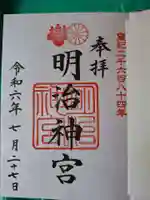 皇紀二千六百八十四年
奉拝
明治神宮
令和六年 七月二十七日